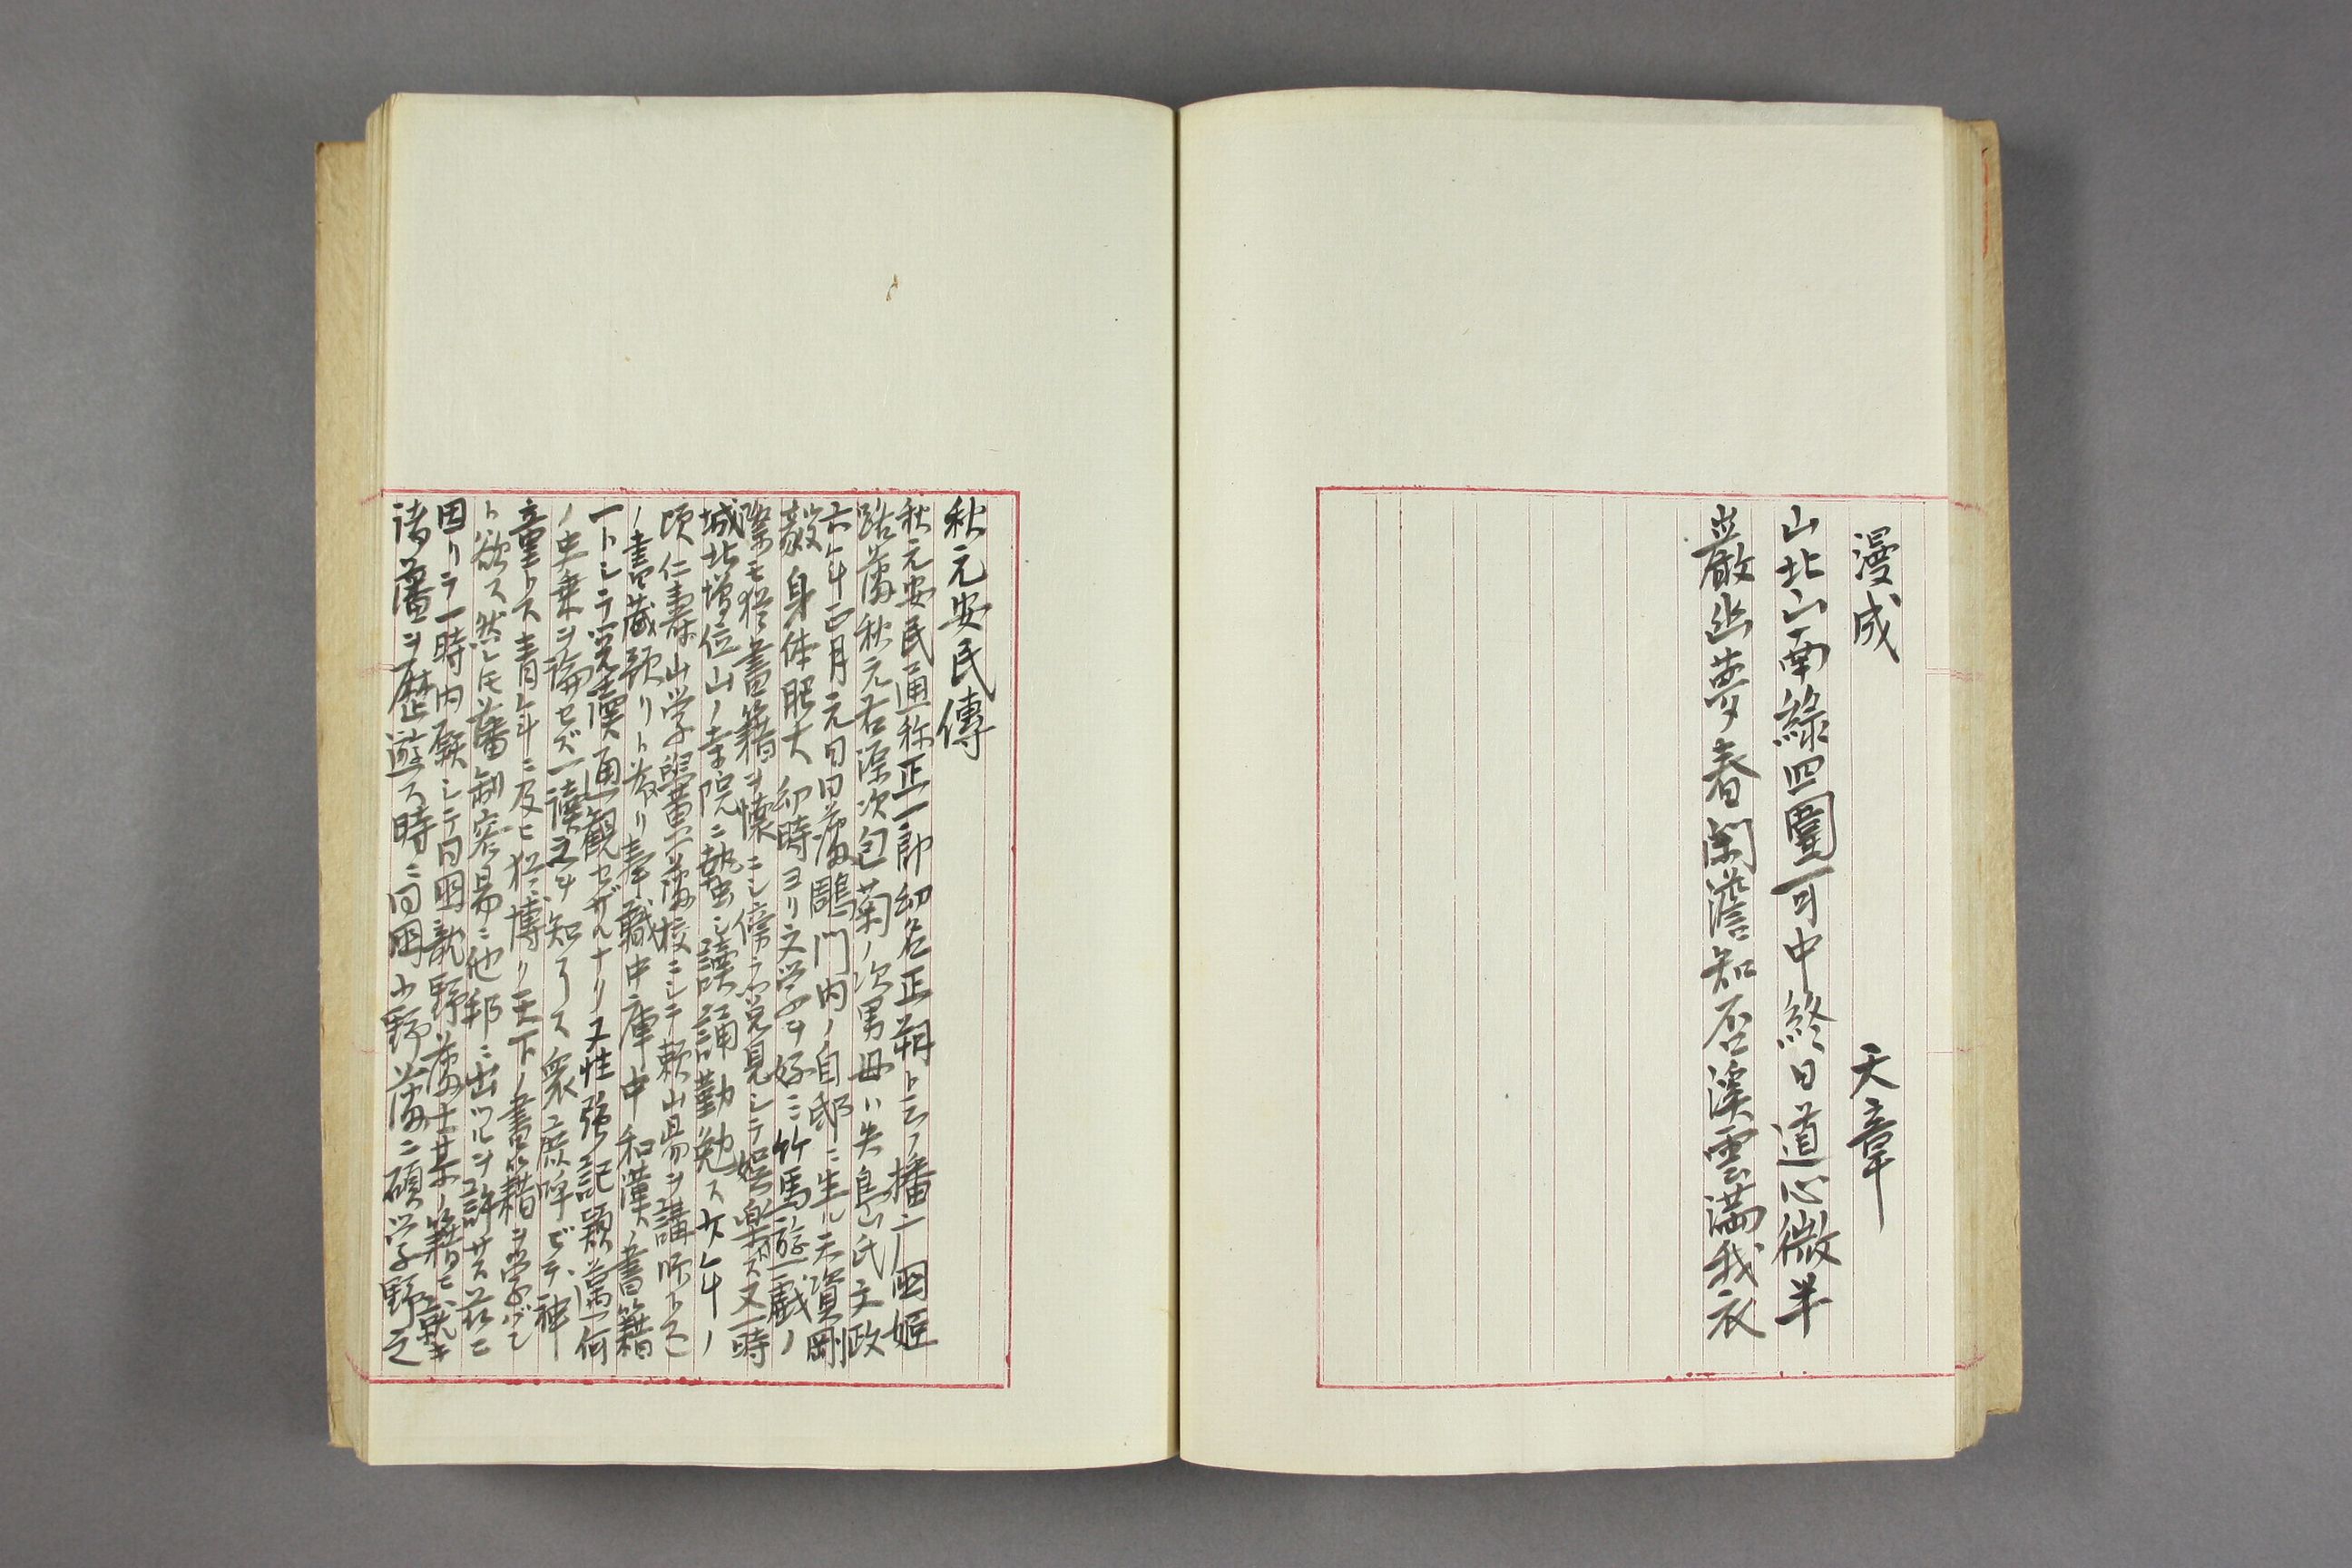 漫成
天章
山北山南緑四圍可中終日道心微半
巌幽夢春閑澹知否渓雲満我衣
秋元安民傳
秋元安民通称正一郎幼名正朔ト云フ播磨国姫
路藩秋元右源次包菊ノ次男母ハ矢島氏文政
六年正月元日同藩鵰門内ノ自邸ニ生ル天資剛
毅身体肥大幼時ヨリ文学ヲ好ミ竹馬遊戯ノ
際モ猶書籍ヲ懐ニシ傍ラ覚見シテ娯楽ス又一時
城北増位山ノ寺院ニ蟄シ讀誦勤勉ス廿年ノ
頃仁寿山学黌藩校ニシテ頼山陽ヲ講師ト云ヒ
ノ書蔵預リト為リ奉職中庫中和漢ノ書籍
一トシテ覚讀通観セザルナリ又性強記頴邁何
ノ史乗ヲ論セズ一讀之ヲ知了ス衆庶呼ビテ神
童トス青年ニ及ヒ猶博ク天下ノ書籍ヲ学バン
ト欲ス然レモ藩制容易ニ他邦ニ出ツルヲ許サス茲ニ
因リテ一時内願シテ同国龍野藩士某ノ籍ヒ就キ
諸藩ヲ歴遊ス時ニ同国小野藩ニ碩学野之